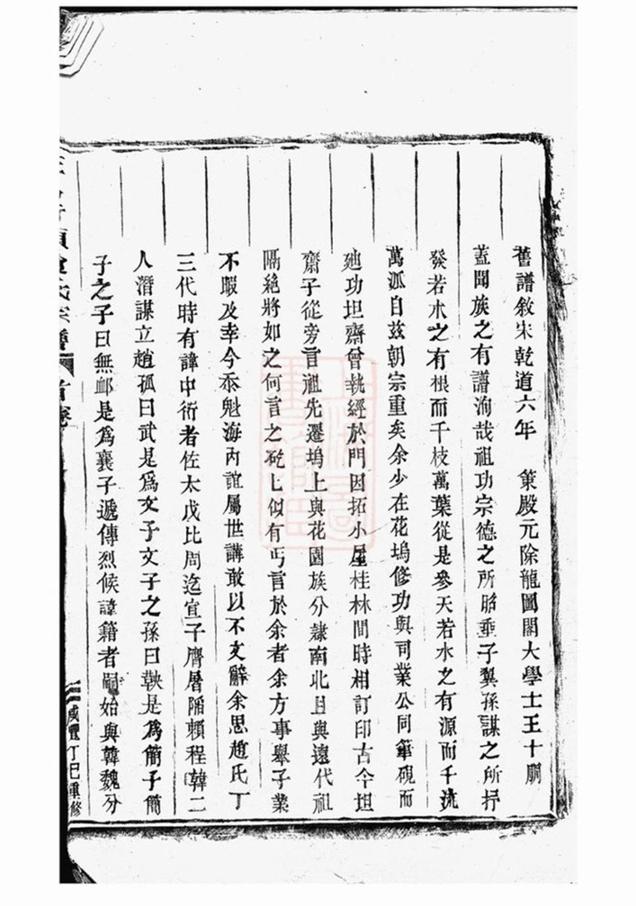 舊譜敘宋乾道六年 策殿元除龍圖閣大學士王十朋
蓋聞族之有譜洵哉祖功宗德之所昭垂子翼孫謀之所抒
發若木之有根而千枝萬葉從是參天若水之有源而千流
萬派自兹朝宗重矣余少在花塢修功與司業公同筆硯而
廸功坦齋曾執經於門因拓小屋桂林間時相訂印古今坦
齋子從旁言祖先遷塢上與花園族分隸南北且與遠代祖
隔絶將如之何言之矻乚似有丐言於余者余方事舉子業
不暇及幸今忝魁海內誼屬世講敢以不文辭余思趙氏丁
三代時有諱中衍者佐太戊比周迄宣子膺屠隋賴程韓二
人潛謀立趙孤曰武是爲文子文子之孫曰鞅是爲簡子簡
子之子曰無䘏是爲襄子遞傳烈侯諱籍者嗣始與韓魏分
氏宗譜 首卷
咸豐丁巳重修